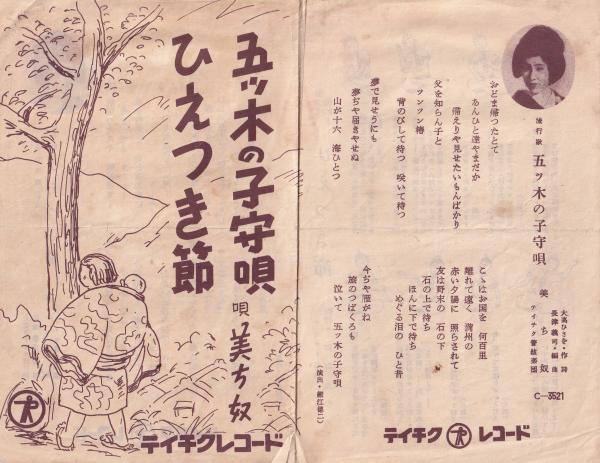 五ッ木の子守唄
ひえつき節
唄 美ち奴
テイチクレコード
流行歌
五ッ木の子守唄
大高ひさを・作詩
長津義司・編曲
美ち奴
テイチク管絃楽団
C-3521
おどま帰ったとて
あんひと達やまだか
備えりや見せたいもんばかり
父を知らん子と
ツンツン椿
背のびして待つ 咲いて待つ
夢で見せうにも
夢ぢや届きやせぬ
山が十六 海ひとつ
こゝはお国を 何百里
離れて遠く 満州の
赤い夕陽に 照らされて
友は野末の 石の下
石の上で待ち
ほんに下で待ち
めぐる泪の ひと昔
今ぢや雁がね
旅のつばくろも
泣いて 五ッ木の子守唄
テイチク レコード